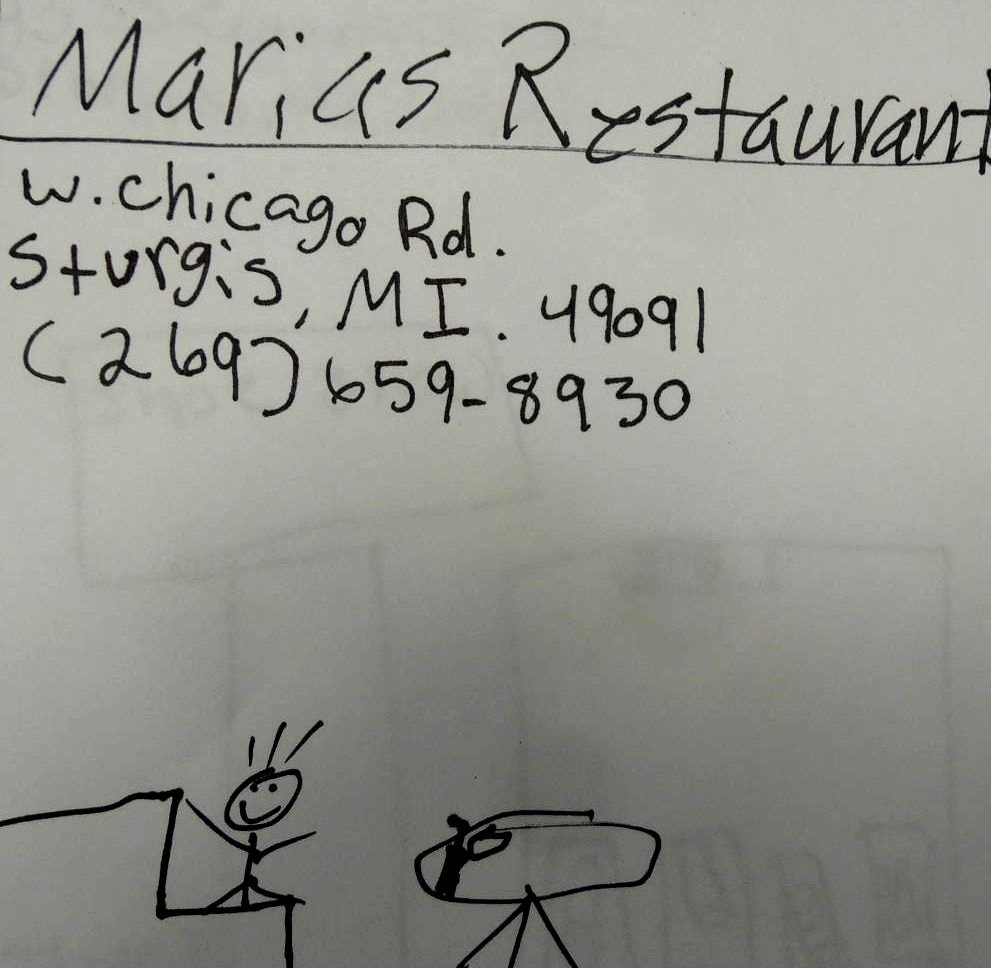 Marias Restaurant
W. Chicago Rd.
Sturgis, MI. 49091
(269) 659-8930